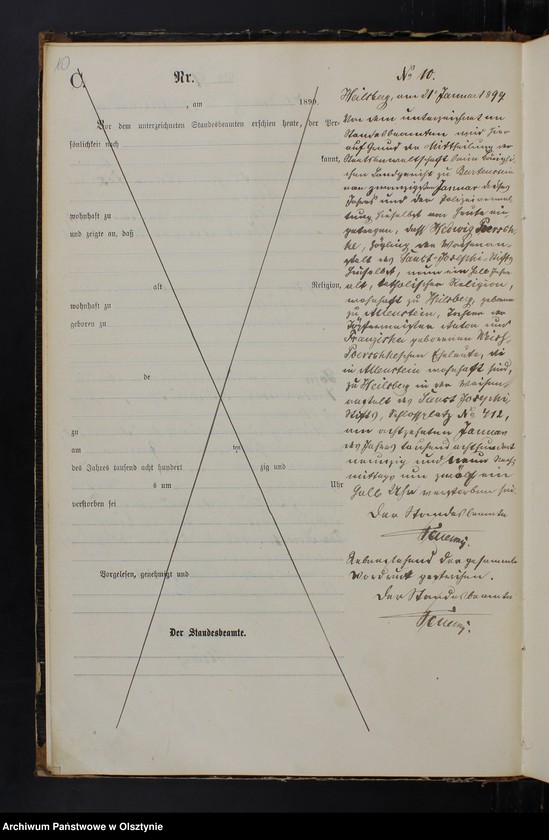 10
C.
Nr.
, am 1899.
Vor dem unterzeichneten Standesbeamten erschien heute, der Per-
sönlichkeit nach
kannt,
wohnhaft zu
und zeigte an, daß
alt, Religion,
wohnhaft zu
geboren zu
de
zu
am ten
des Jahres tausend acht hundert zig und
s um Uhr
verstorben sei
Vorgelesen, genehmigt und
Der Standesbeamte.
No 10.
Heilsberg, am 21 Januar 1899
Von dem unterzeichneten
Standesbeamten wird hier
auf Grund der Mittheilung der
Staatsanwaltschaft beim Königli-
chen Landgericht zu Bartenstein
vom zwanzigsten Januar dieses
Jahres und der Polizeiverwal-
tung hierselbst von heute ein-
getragen, daß Hedwig
Zögling der Waisenan-
stalt des Sanct-Josephi-Stifts
hierselbst, neun ein halb Jahre
alt, katholischer Religion,
wohnhaft zu Heilsberg, geboren
zu Allenstein, Tochter der
Töpfermeister Anton und
Franziska geborenen
Eheleute, die
in Allenstein wohnhaft sind,
zu Heilsberg in der Waisen-
anstalt des Sanct Josephi
Stifts, Schloßplatz No 412,
am achtzehnten Januar
des Jahres tausend achthundert
neunzig und neun Nach-
mittags um zwölf ein
halb Uhr verstorben sei
Der Standesbeamte
Nebenstehend der gesammte
Vordruck gestrichen.
Der Standesbeamte
Archiwum Państwowe w Olsztynie